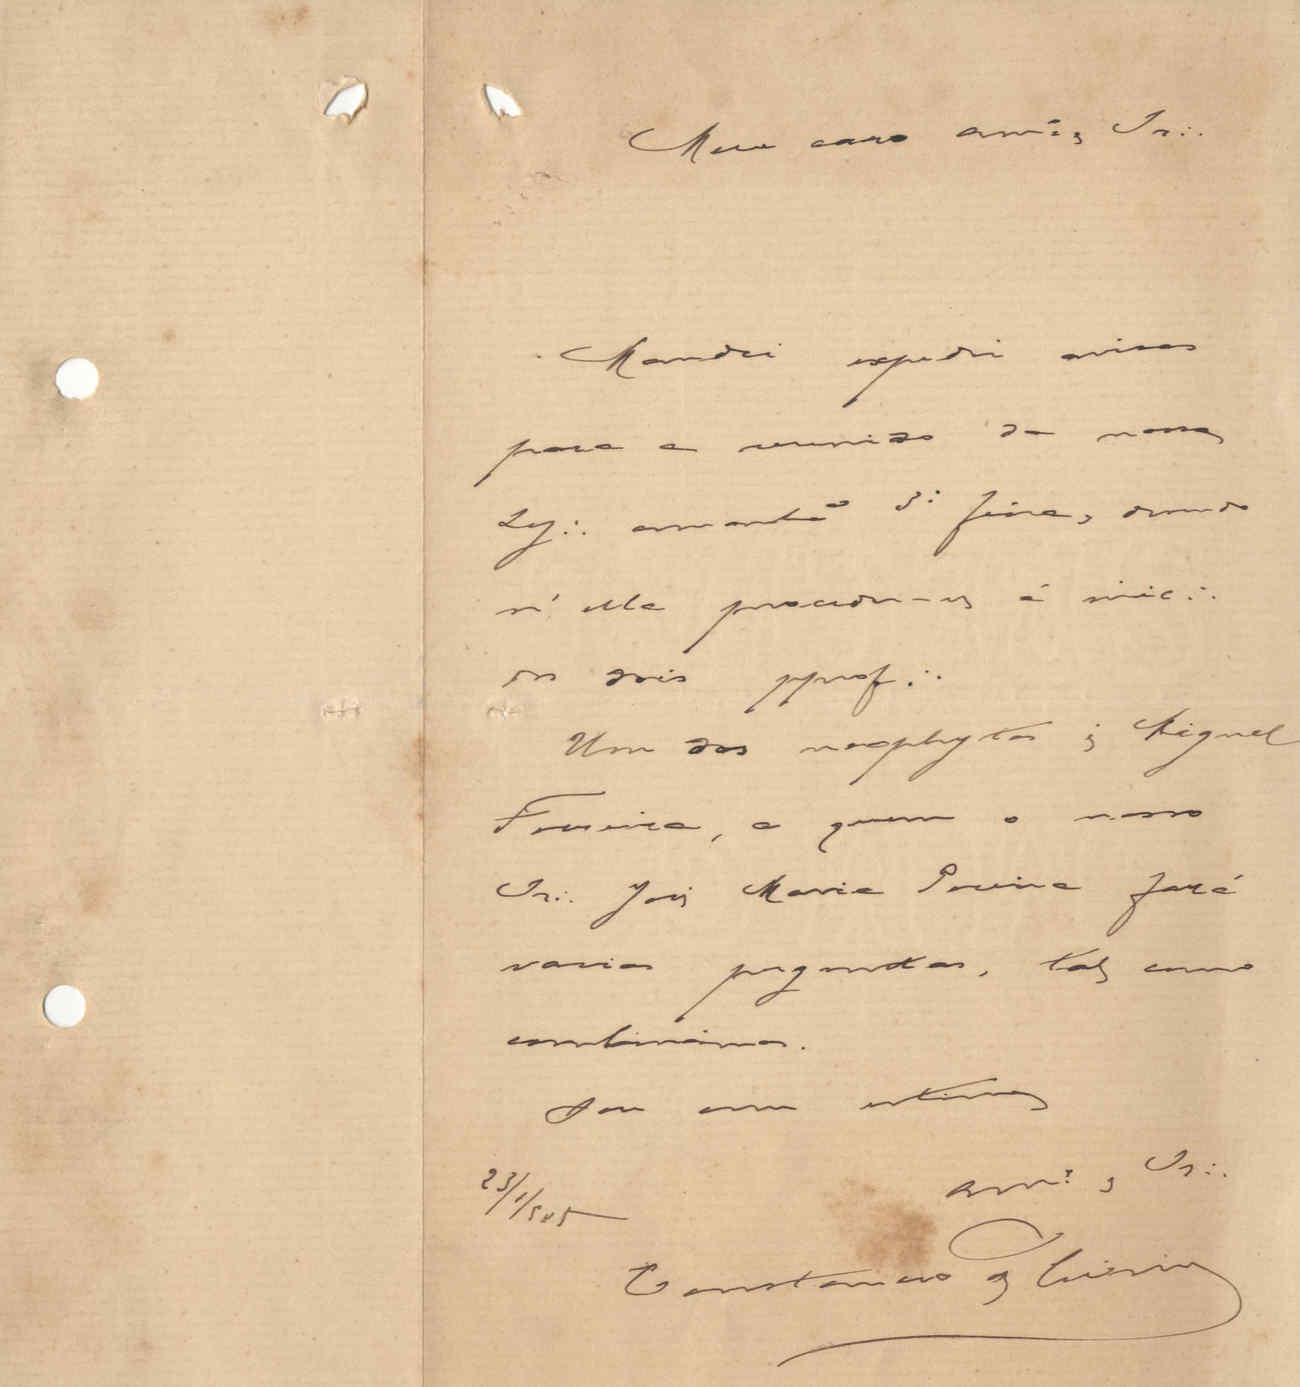 Meu caro am.º e Ir∴
Mandei expedir avisos
para a reunião da nossa
Loj∴ amanhã 3.ª feira, devendo
n'ella proceder-se á inic∴
dos dois pprof∴
Um dos neophytos é Miguel
Ferreira, a quem o nosso
Ir∴ José Maria Pereira fará
varias perguntas, tal como
combinámos.
Sou com estima
am.º e Ir∴
23/1/905
Constancio d'Oliveira